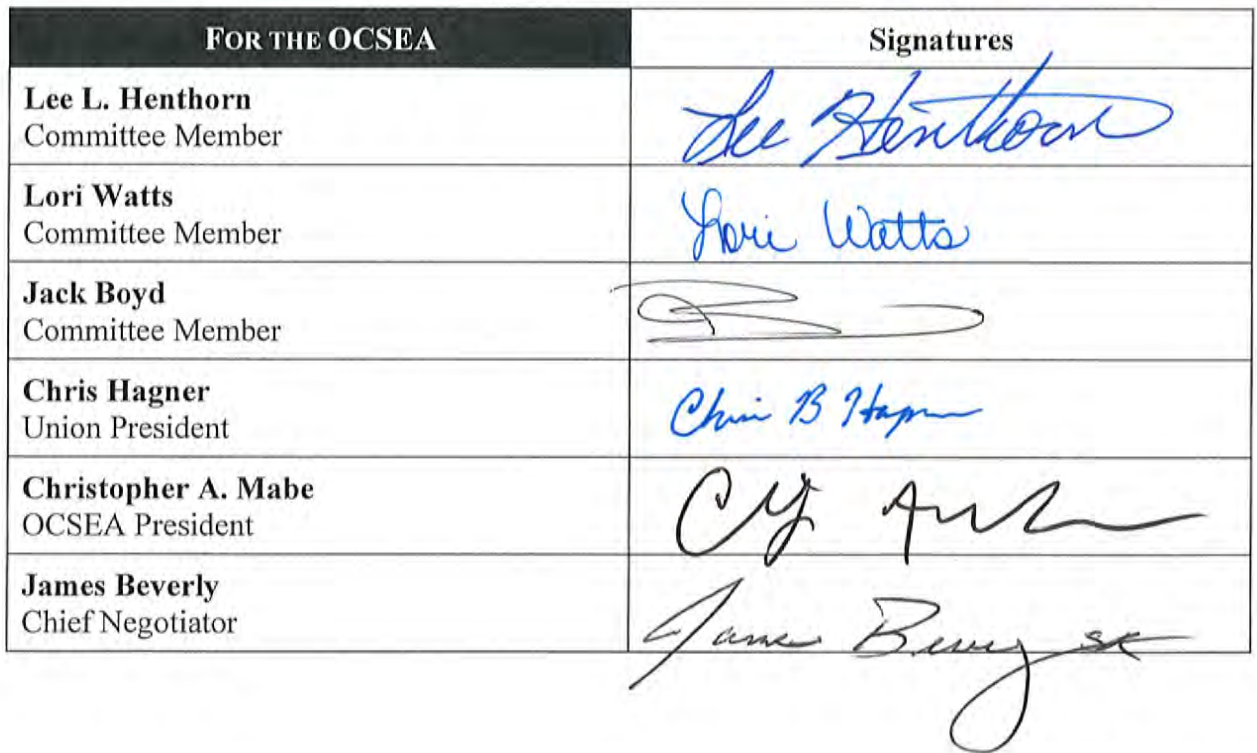 FOR THE OCSEA
Signatures
Lee L. Henthorn
Committee Member
Lee Henthorn
Lori Watts
Committee Member
Lori Watts
Jack Boyd
Committee Member
Chris Hagner
Union President
Chris B Hagner
Christopher A. Mabe
OCSEA President
James Beverly
Chief Negotiator
James Beverly